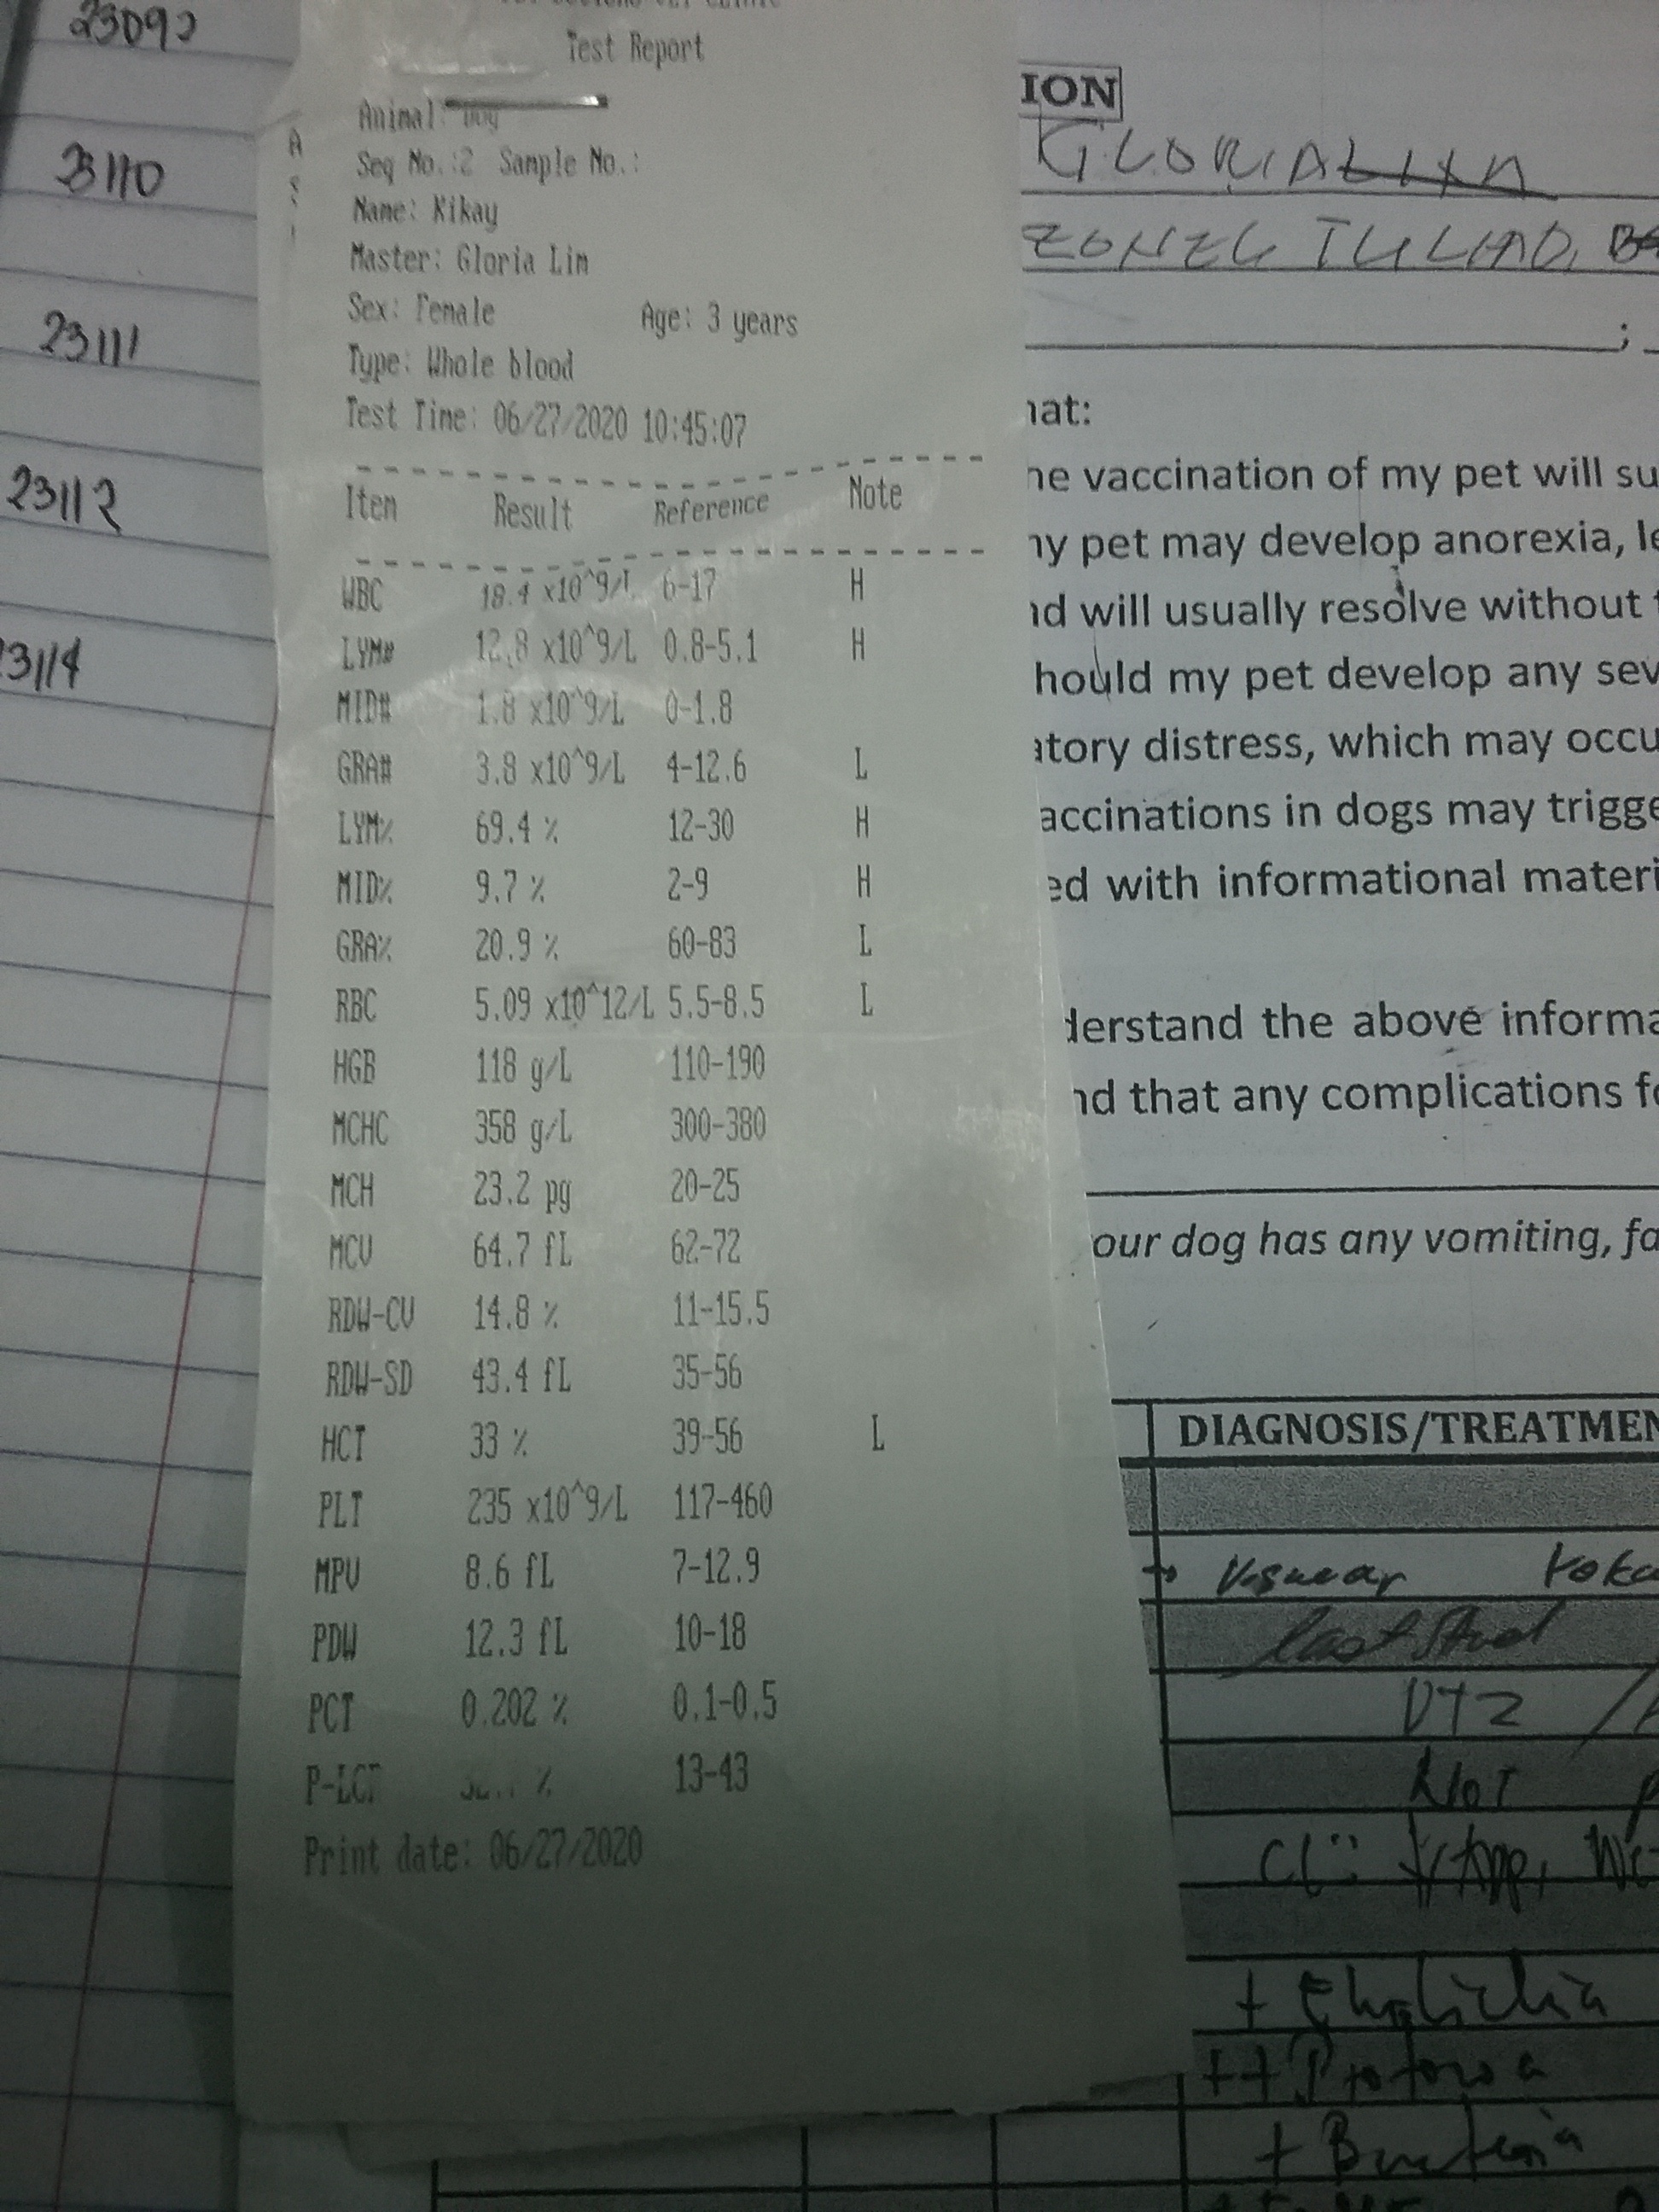 23090
23110
23111
23112
23114
Test Report
Animal: Dog
Seq No.:2 Sample No.:
Name: Kikay
Master: Gloria Lim
Sex: Female Age: 3 years
Type: Whole blood
Test Time: 06/27/2020 10:45:07
Item Result Reference Note
WBC 18.4 x10^9/L 6-17 H
LYM# 12.8 x10^9/L 0.8-5.1 H
MID# 1.8 x10^9/L 0-1.8
GRA# 3.8 x10^9/L 4-12.6 L
LYM% 69.4 % 12-30 H
MID% 9.7 % 2-9 H
GRA% 20.9 % 60-83 L
RBC 5.09 x10^12/L 5.5-8.5 L
HGB 118 g/L 110-190
MCHC 358 g/L 300-380
MCH 23.2 pg 20-25
MCV 64.7 fL 62-72
RDW-CV 14.8 % 11-15.5
RDW-SD 43.4 fL 35-56
HCT 33 % 39-56 L
PLT 235 x10^9/L 117-460
MPV 8.6 fL 7-12.9
PDW 12.3 fL 10-18
PCT 0.202 % 0.1-0.5
% 13-43
Print date: 06/27/2020
ION
GLORIA
hat:
he vaccination of my pet will su
ny pet may develop anorexia, le
nd will usually resolve without
hould my pet develop any sev
atory distress, which may occu
accinations in dogs may trigge
ed with informational materi
derstand the above informa
nd that any complications fo
our dog has any vomiting, fa
DIAGNOSIS/TREATMEN
last
+ Ehrlichia
++ Protozoa
+ Bacteria